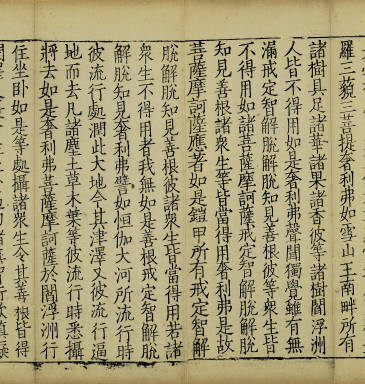 羅三藐三菩提奢利弗如雪山王南畔所有
諸樹具足諸華諸果諸香彼等諸樹閻浮洲
人皆不得用如是奢利弗聲聞獨覺雖有無
滿戒定智解脫解脫知見善根彼等眾生皆
不得用如諸菩薩摩訶薩戒定智解脫解脫
知見善根諸眾生等皆當得用奢利弗是故
菩薩摩訶薩應著如是鎧甲所有戒定智解
脫解脫知見善根彼諸眾生皆當得用若諸
眾生不得用者我無如是善根戒定智解脫
解脫知見奢利弗譬如恒伽大河所流行時
彼流行處潤此大地令其津澤又彼流行逼
地而去凡諸塵土草木葉等彼流行時悉攝
將去如是奢利弗菩薩摩訶薩於閻浮洲行
住坐卧如是等處攝諸眾生令其善根皆得